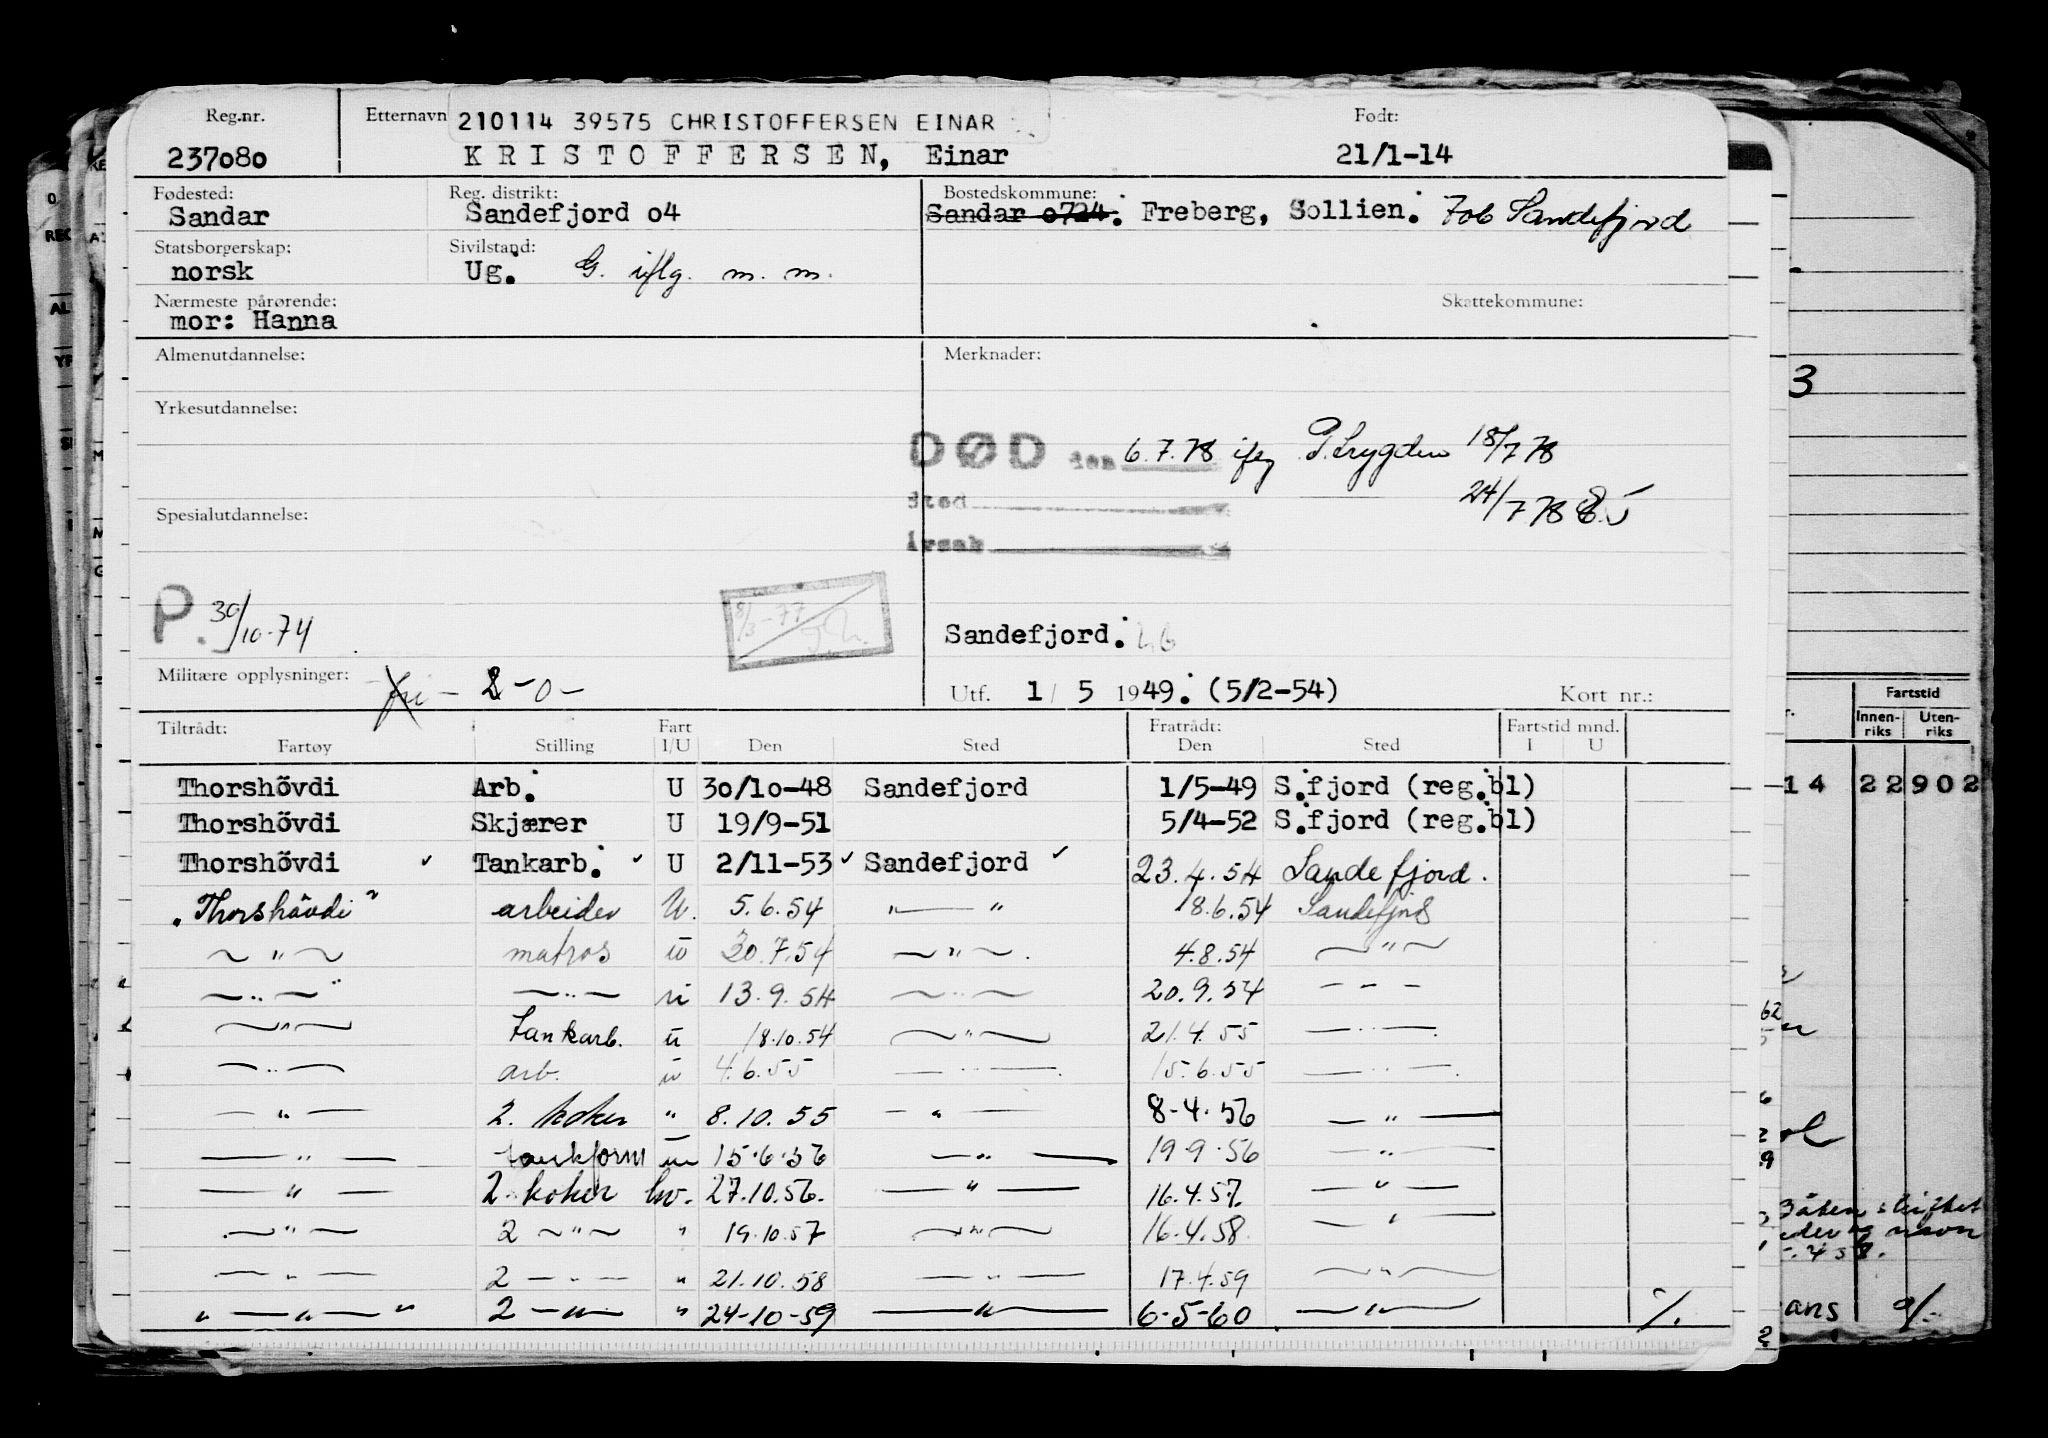 Reg.nr. Etternavn 210114 39575 CHRISTOFFERSEN EINAR Født:
237080 KRISTOFFERSEN, Einar 21/1-14
Fødested: Reg. distrikt: Bostedskommune:
Sandar Sandefjord o4 Sandar o724. Freberg, Sollien. 706 Sandefjord
Statsborgerskap: Sivilstand:
norsk Ug. G. iflg. m. m.
Nærmeste pårørende: Skattekommune:
mor: Hanna
Almenutdannelse: Merknader:
Yrkesutdannelse:
DØD den 6.7.78 ifg P.trygden 18/7 78
Sted 24/7 78
Spesialutdannelse:
Årsak
P. 30/10-74 8/3-77
Sandefjord.
Militære opplysninger: fri - 2-0-
Utf. 1/ 5 1949. (5/2-54) Kort nr.:
Tiltrådt: Fart Fratrådt: Fartstid mnd.
Fartøy Stilling I/U Den Sted Den Sted I U
Thorshövdi Arb. U 30/10-48 Sandefjord 1/5-49 S.fjord (reg.bl)
Thorshövdi Skjærer U 19/9-51 5/4-52 S.fjord (reg.bl)
Thorshövdi ✓ Tankarb. ✓ U 2/11-53 ✓ Sandefjord ✓ 23.4.54 Sandefjord.
"Thorshövdi" arbeider U. 5.6.54 — " 18.6.54 Sandefjord
~ " ~ matros u 30.7.54 ~ " ~ . 4.8.54 ~ " ~
~ " ~ ~ " ~ u 13.9.54 ~ " ~ 20.9.54 - - -
~ " ~ Tankarb. u 18.10.54 ~ " ~ 21.4.55 — " —
— " — arb. u 4.6.55 — " — 15.6.55 — " —
— " — 2. koker " 8.10.55 — " — 8-4.56 — " —
— " — tankform u 15.6.56 — " — 19.9.56 — " —
— " — 2. koker hv. 27.10.56. — " — 16.4.57. — " —
~ " ~ 2 ~ " ~ " 19.10.57 ~ " ~ 16.4.58. — " —
— " — 2 — " — " 21.10.58 — " — 17.4.59 ~ " ~
" — " — " 2 — " — " 24-10-59 — " — 6-5-60 — " — ./.
3
Fartstid
Innen-riks Uten-riks
14 22902
ans